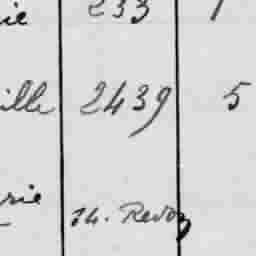 ie 233 1
ille 2439 5
rie 14. Redon